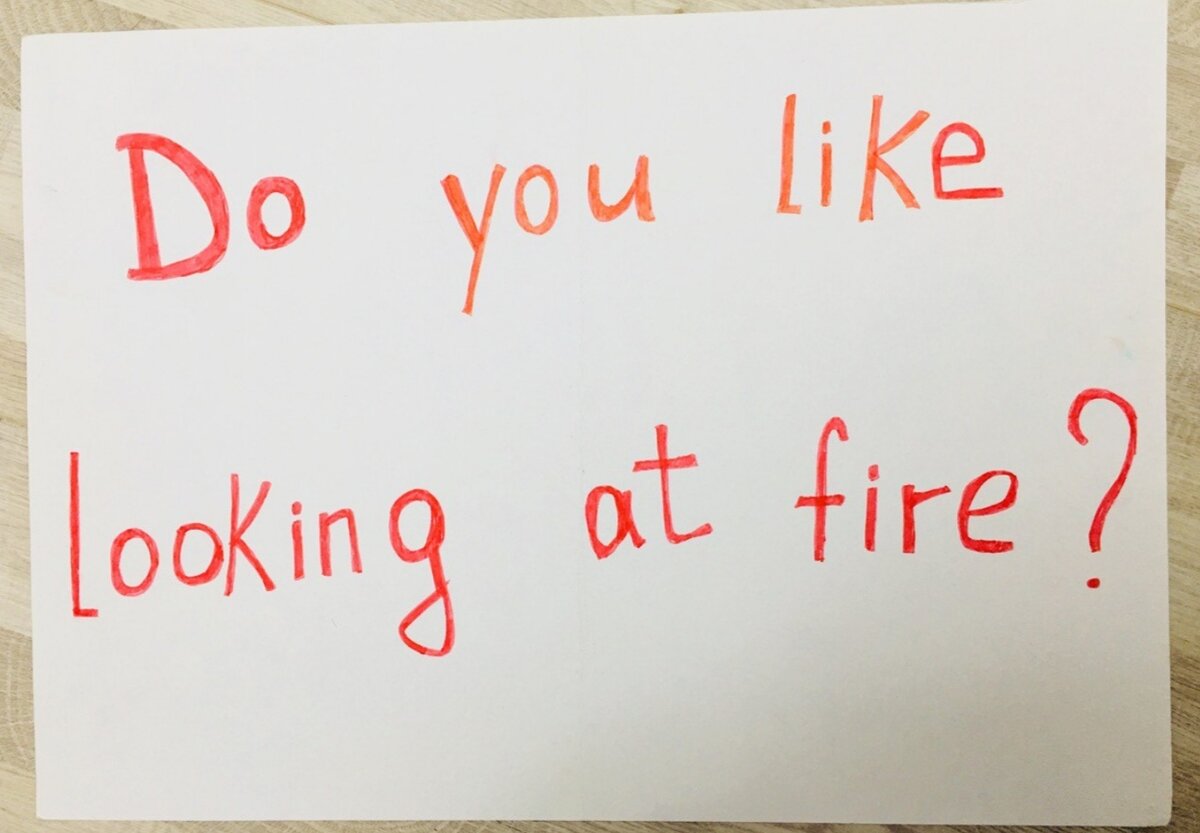 Do you like
Looking at fire?